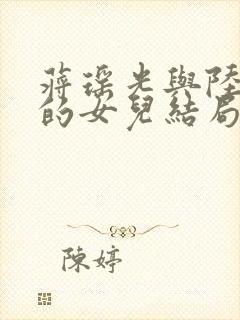 蔣瑤光與陸
的女兒結局
陳婷